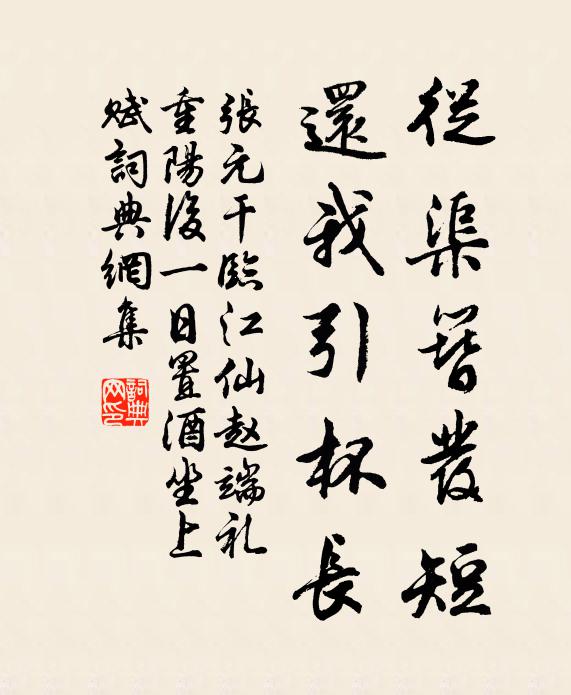 從渠簪發短
還我引杯長
張元干臨江仙赵端礼
重陽後一日置酒坐上
赋詞典網集
詞典網印